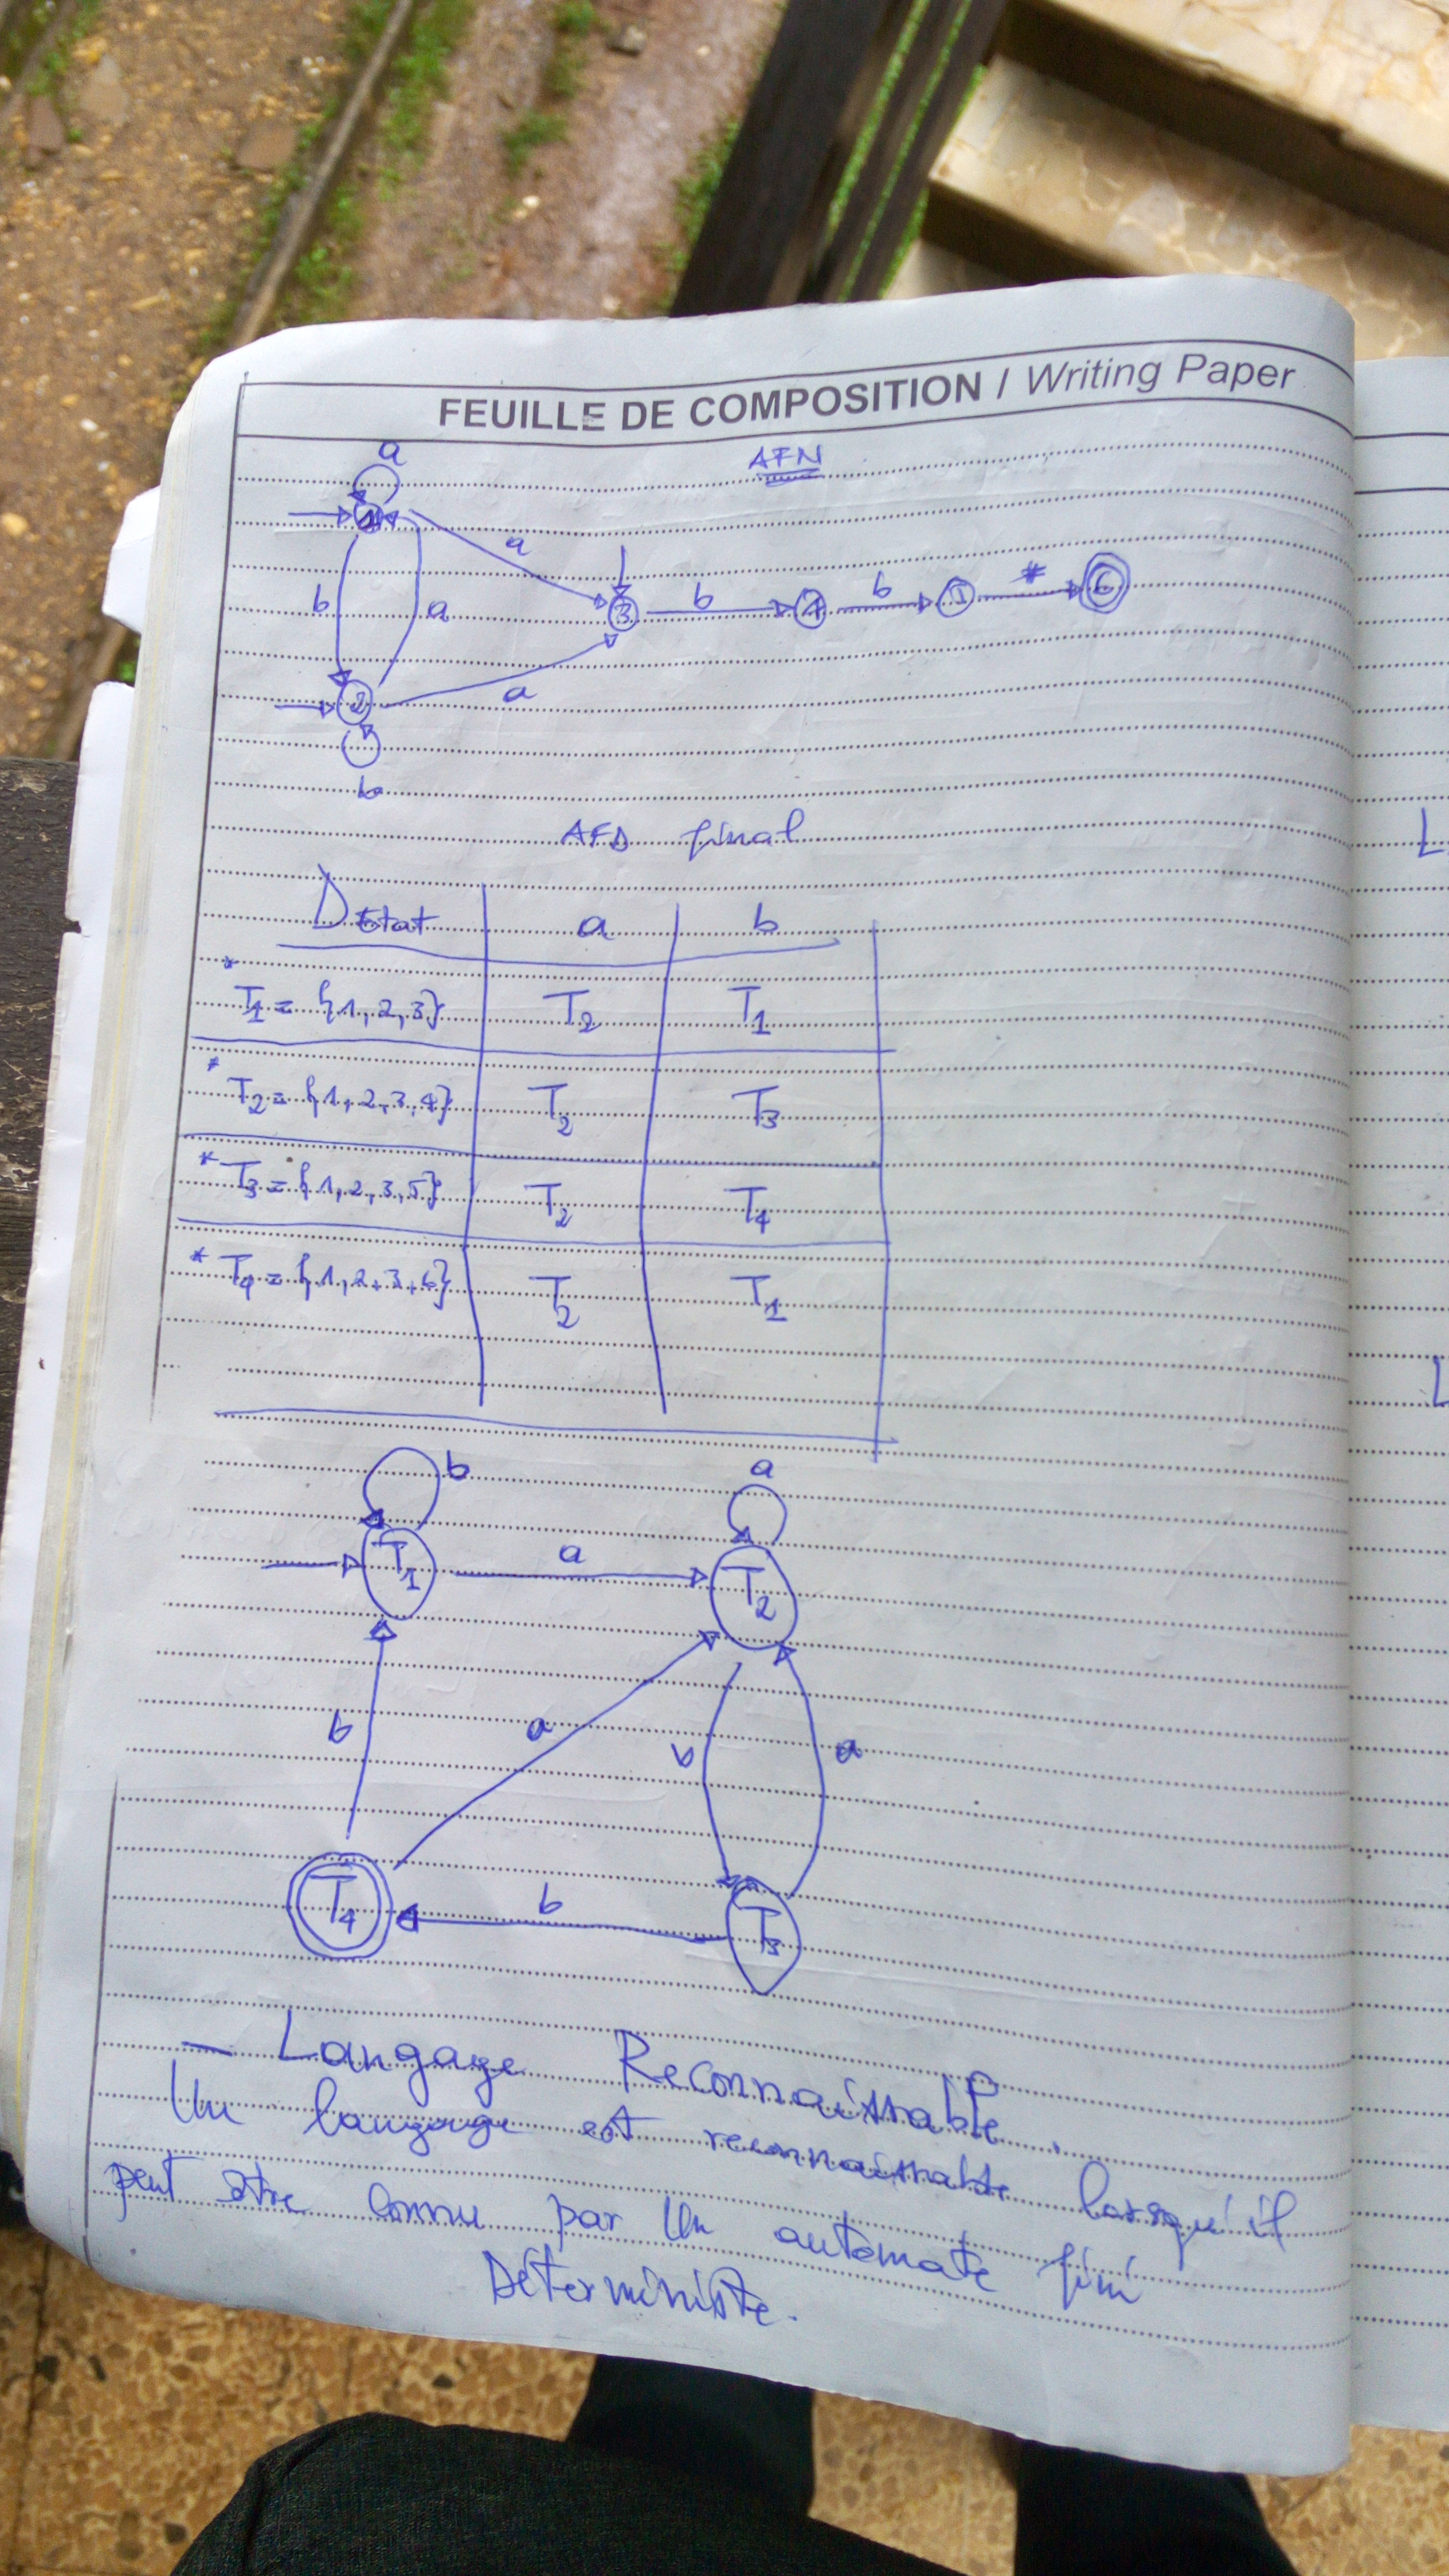 FEUILLE DE COMPOSITION / Writing Paper
AFN
a
1
a
b
a
3
b
4
b
5
#
6
2
a
b
AFD final
DEtat a b
* T1 = {1, 2, 3} T2 T1
* T2 = {1, 2, 3, 4} T2 T3
* T3 = {1, 2, 3, 5} T2 T4
* T4 = {1, 2, 3, 6} T2 T1
b a
T1 a T2
b a b a
T4 b T3
— Langage Reconnaissable.
Un langage est reconnaissable lorsqu'il
peut être connu par un automate fini
Déterministe.
L
L